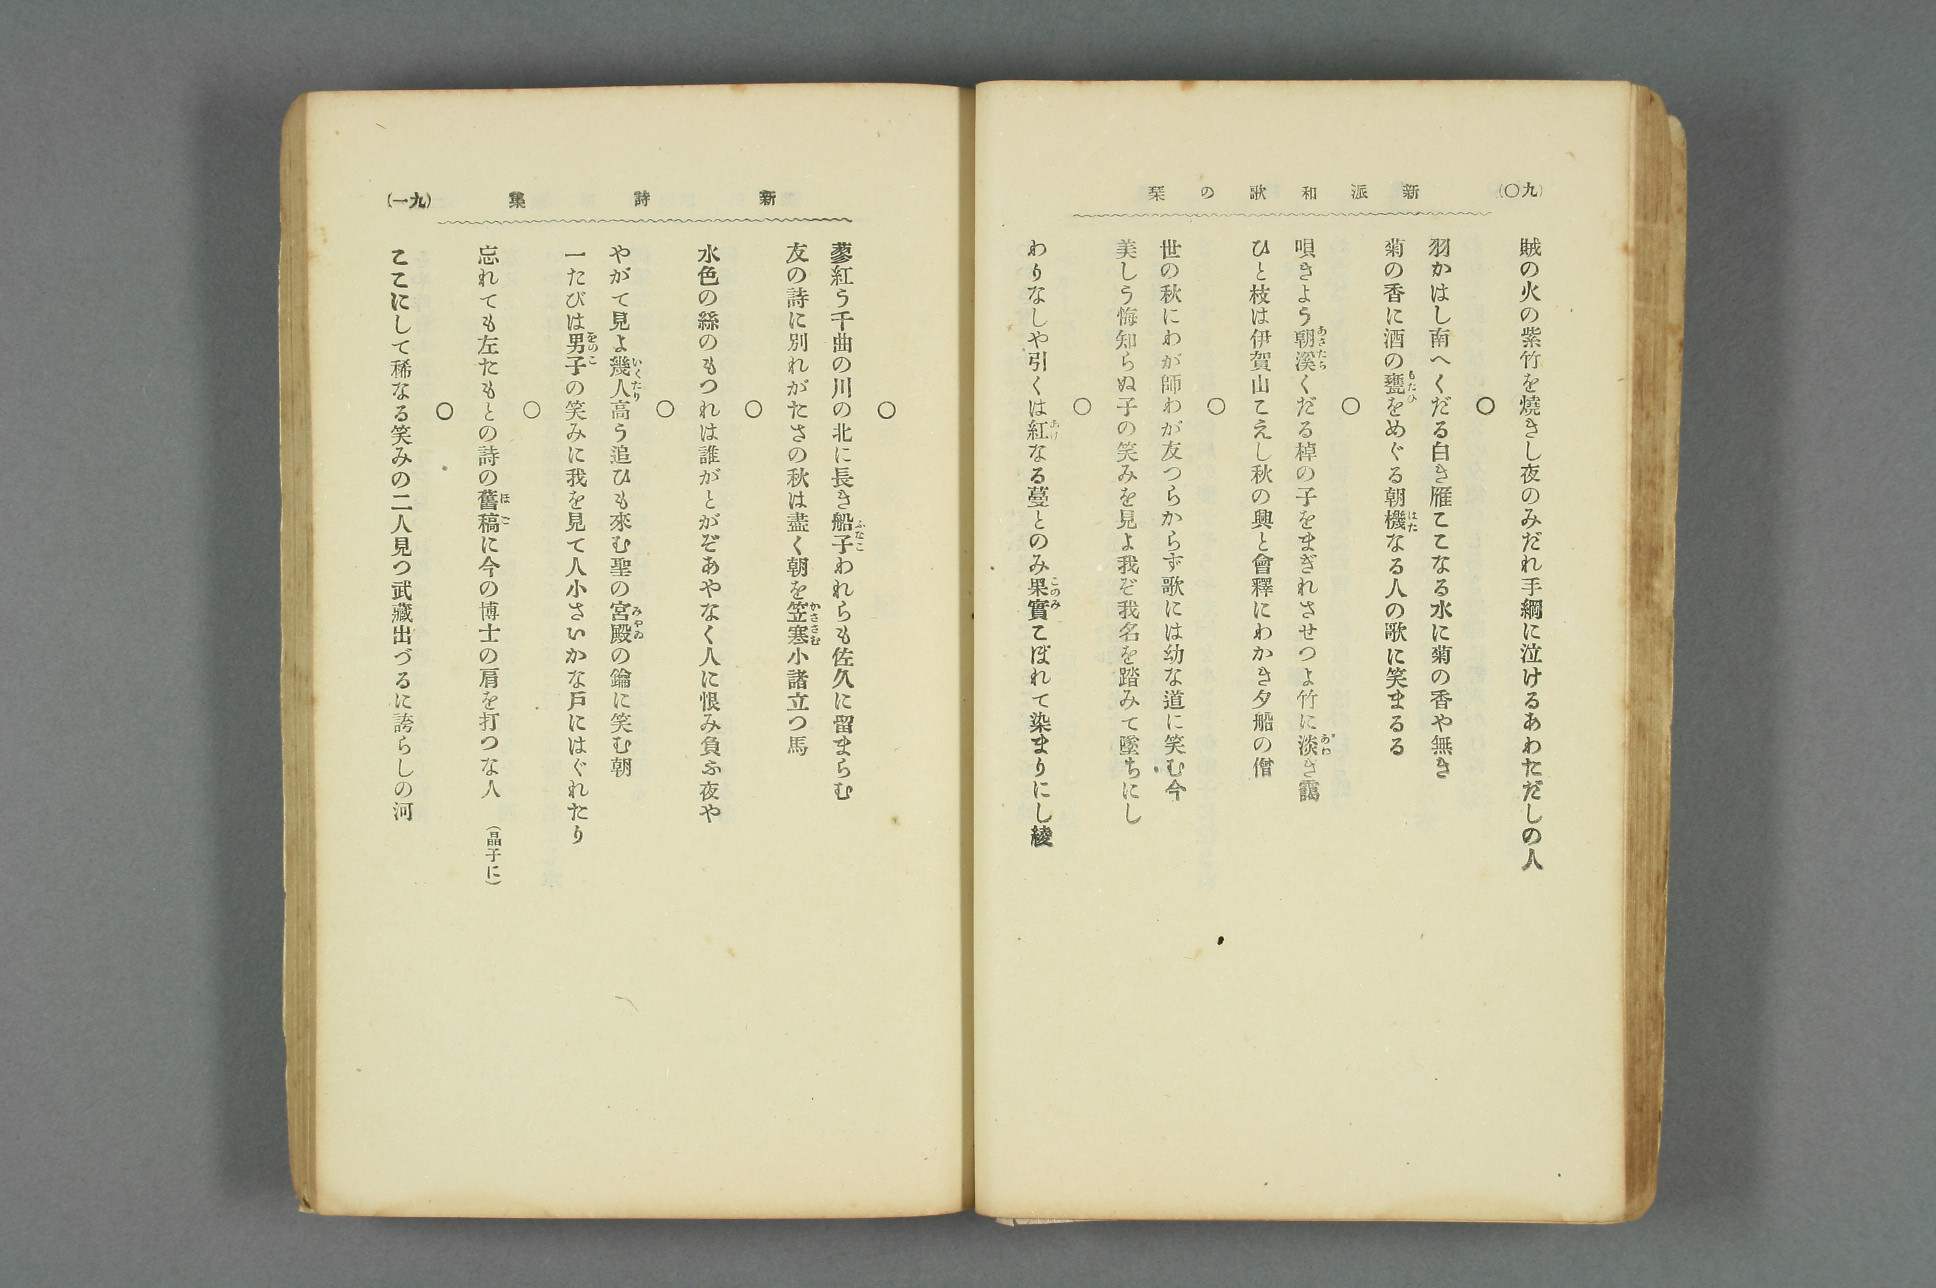 (九〇)
新派和歌の栞
賊の火の紫竹を燒きし夜のみだれ手綱に泣けるあわただしの人
○
羽かはし南へくだる白き雁こゝなる水に菊の香や無き
菊の香に酒の甕をめぐる朝機なる人の歌に笑まるる
もたひ
はた
○
唄きよう朝溪くだる棹の子をまぎれさせつよ竹に淡き靄
あさたち
あわ
ひと枝は伊賀山こえし秋の興と會釋にわかき夕船の僧
○
世の秋にわが師わが友つらからず歌には幼な道に笑む今
美しう悔知らぬ子の笑みを見よ我ぞ我名を踏みて墜ちにし
○
わりなしや引くは紅なる蔓とのみ果實こぼれて染まりにし綾
あけ
このみ
新詩集
(九一)
○
蓼紅う千曲の川の北に長き船子われらも佐久に留まらむ
ふなこ
友の詩に別れがたさの秋は盡く朝を笠寒小諸立つ馬
かささむ
○
水色の絲のもつれは誰がとがぞあやなく人に恨み負ふ夜や
○
やがて見よ幾人高う追ひも來む聖の宮殿の鑰に笑む朝
いくたり
みやゐ
一たびは男子の笑みに我を見て人小さいかな戸にはぐれたり
をのこ
○
忘れても左たもとの詩の舊稿に今の博士の肩を打つな人 (晶子に)
○
こゝにして稀なる笑みの二人見つ武藏出づるに誇らしの河